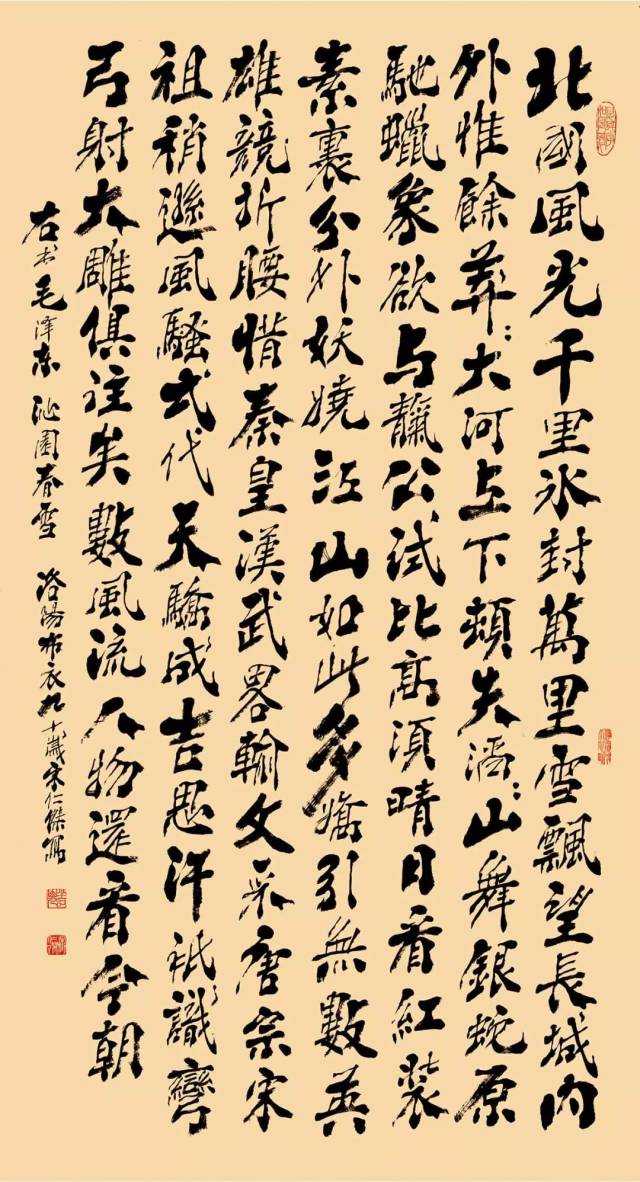 北國風光千里冰封萬里雪飄望長城内
外惟餘莽々大河上下頓失滔々山舞銀蛇原
馳蠟象欲与靝公試比高須晴日看紅裝
素裹分外妖嬈江山如此多嬌引無數英
雄競折腰惜秦皇漢武畧輸文采唐宗宋
祖稍遜風騷弌代天驕成吉思汗祇識彎
弓射大雕俱往矣數風流人物還看今朝
右书毛泽东沁園春雪 洛陽布衣九十歲宋仁傑寫